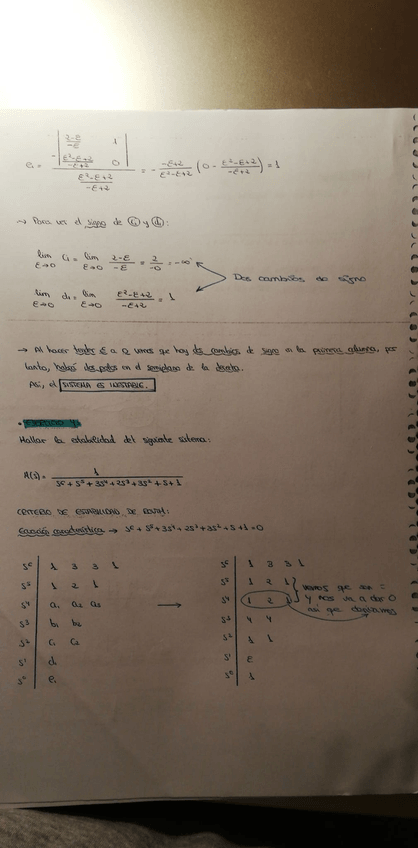 e₁ = -| (2-ε)/(-ε)  1 ; (ε²-ε+2)/(-ε+2)  0 | / ((ε²-ε+2)/(-ε+2)) = - (-ε+2)/(ε²-ε+2) (0 - (ε²-ε+2)/(-ε+2)) = 1
→ Para ver el signo de c₁ y d₁:
lim ε→0 c₁ = lim ε→0 (2-ε)/(-ε) = 2/-0 = -∞
Dos cambios de signo
lim ε→0 d₁ = lim ε→0 (ε²-ε+2)/(-ε+2) = 1
→ Al hacer tender ε a 0 vemos que hay dos cambios de signo en la primera columna, por
tanto, habrá dos polos en el semiplano de la derecha.
Así, el SISTEMA ES INESTABLE.
• EJERCICIO 4:
Hallar la estabilidad del siguiente sistema:
A(s) = 1 / (s⁶ + s⁵ + 3s⁴ + 2s³ + 3s² + s + 1)
CRITERIO DE ESTABILIDAD DE ROUTH:
Ecuación característica → s⁶ + s⁵ + 3s⁴ + 2s³ + 3s² + s + 1 = 0
s⁶ | 1 3 3 1
s⁵ | 1 2 1
s⁴ | a₁ a₂ a₃
s³ | b₁ b₂
s² | c₁ c₂
s¹ | d₁
s⁰ | e₁
→
s⁶ | 1 3 3 1
s⁵ | 1 2 1
s⁴ | 1 2 1
s³ | 4 4
s² | 1 1
s¹ | ε
s⁰ | 1
vemos que son =
y nos va a dar 0
así que derivamos